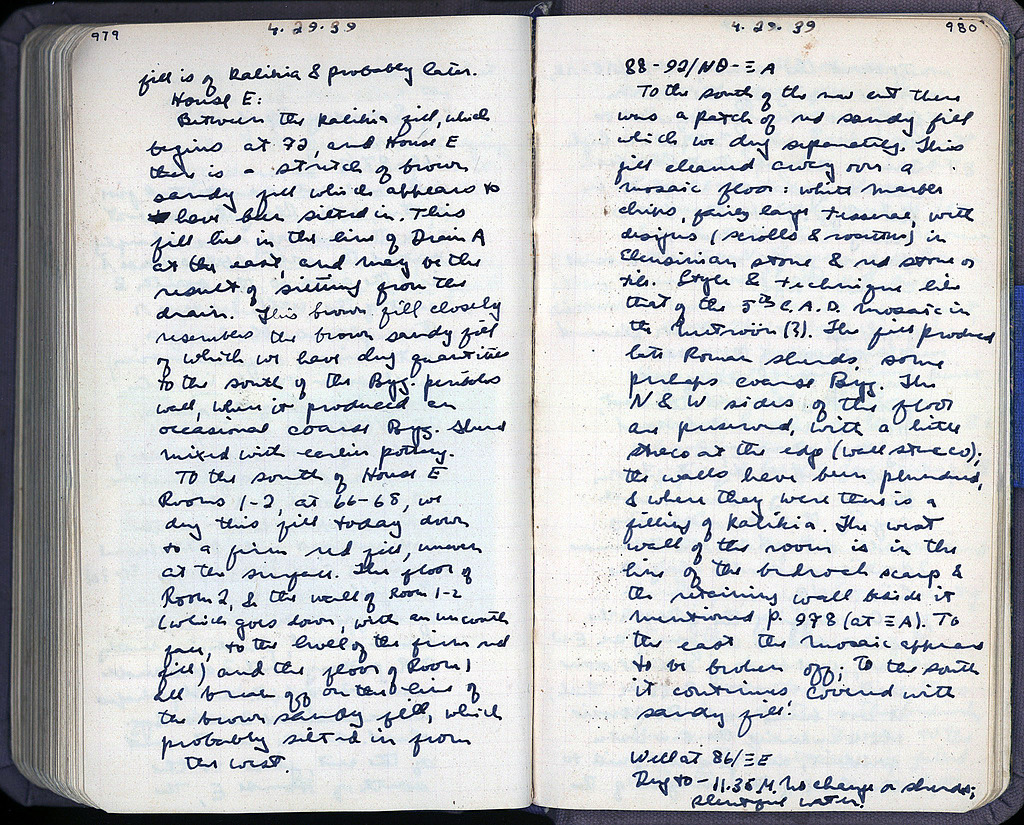 979
4.29.39
fill is of Kalikia & probably later.
House E:
Between the Kalikia fill, which
begins at 72, and House E
there is a stretch of brown
sandy fill which appears to
have been silted in. This
fill lies in the line of Drain A
at the east, and may be the
result of silting from the
drain. This brown fill closely
resembles the brown sandy fill
of which we have dug quantities
to the south of the Byz. peribolos
wall, where it produced an
occasional coarse Byz. sherd
mixed with earlier pottery.
To the south of House E
Rooms 1-2, at 66-68, we
dug this fill today down
to a firm red fill, uneven
at the surface. The floor of
Room 2, & the wall of Room 1-2
(which goes down, with an uncouth
face, to the level of the firm red
fill) and the floor of Room 1
all break off on the line of
the brown sandy fill, which
probably silted in from
the west.
980
4.29.39
88-92/ΝΘ-ΞΑ
To the south of the new cut there
was a patch of red sandy fill
which we dug separately. This
fill cleaned away over a
mosaic floor: white marble
chips, fairly large tesserae, with
designs (scrolls & rosettes) in
Eleusinian stone & red stone or
tile. Style & technique like
that of the 5th C. A.D. mosaic in
the Metroon (?). The fill produced
late Roman sherds, some
perhaps coarse Byz. The
N & W sides of the floor
are preserved, with a little
stucco at the edge (wall stucco);
the walls have been plundered,
& where they were there is a
filling of Kalikia. The west
wall of the room is in the
line of the bedrock scarp &
the retaining wall beside it
mentioned p. 978 (at ΞΑ). To
the east the mosaic appears
to be broken off; to the south
it continues covered with
sandy fill.
Well at 86/ΞΕ
Dug to -11.35 M. No change in sherds;
plentiful water.